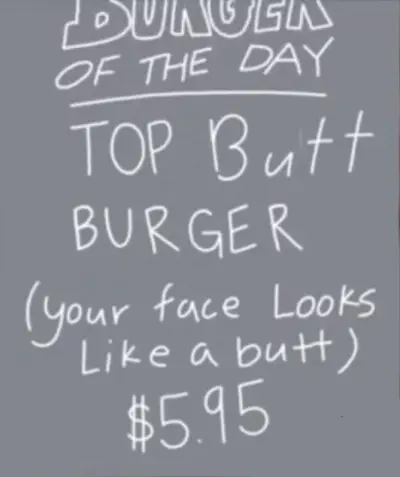 BURGER
OF THE DAY
TOP Butt
BURGER
(your face Looks
Like a butt)
$5.95